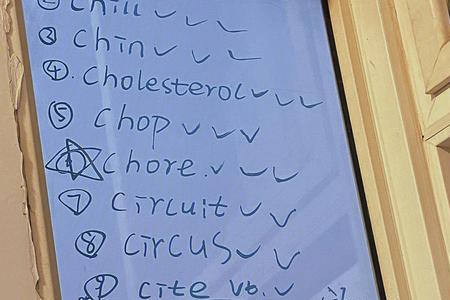 ② Chill ✓ ✓ ✓
③ Chin ✓ ✓ ✓
④. Cholesterol ✓ ✓ ✓
⑤ Chop ✓ ✓ ✓
⑥ Chore. ✓ ✓ ✓
⑦ Circuit ✓ ✓
⑧ Circus ✓ ✓
⑨ cite vb. ✓